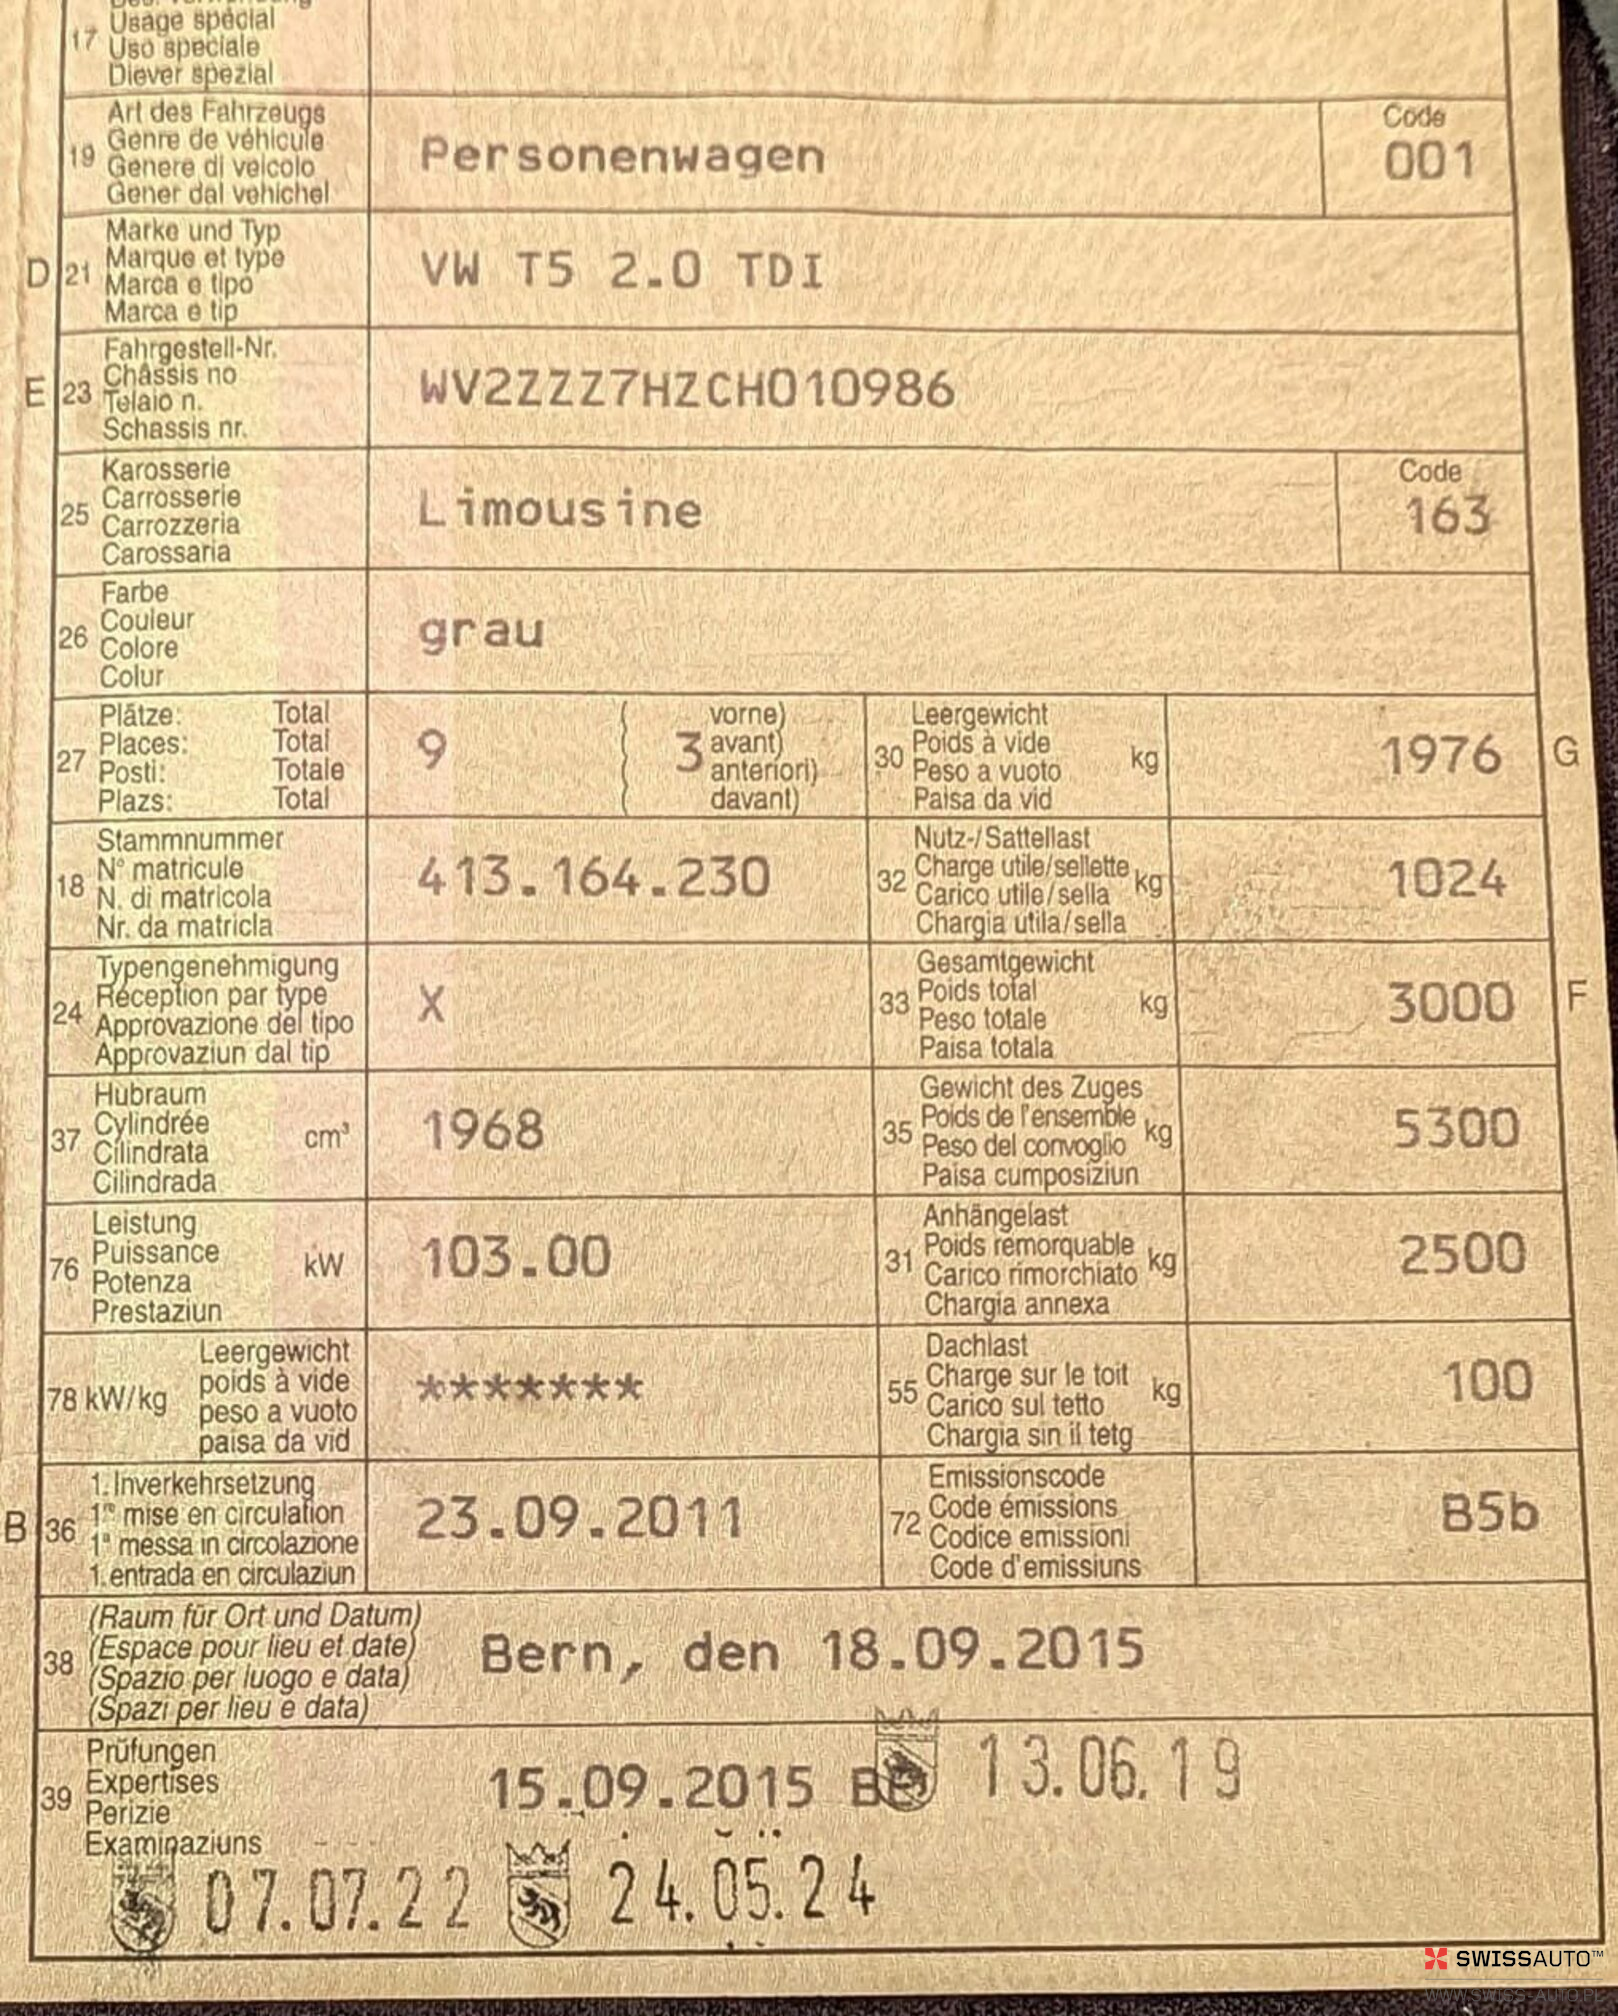 17 Usage spécial
Uso speciale
Diever spezial
19 Art des Fahrzeugs
Genre de véhicule
Genere di veicolo
Gener dal vehichel
Personenwagen
Code
001
D 21 Marke und Typ
Marque et type
Marca e tipo
Marca e tip
VW T5 2.0 TDI
E 23 Fahrgestell-Nr.
Châssis no
Telaio n.
Schassis nr.
WV2ZZZ7HZCH010986
25 Karosserie
Carrosserie
Carrozzeria
Carossaria
Limousine
Code
163
26 Farbe
Couleur
Colore
Colur
grau
27 Plätze: Total
Places: Total
Posti: Totale
Plazs: Total
9
( vorne)
( 3 avant)
( anteriori)
( davant)
30 Leergewicht
Poids à vide
Peso a vuoto
Paisa da vid
kg
1976 G
18 Stammnummer
N° matricule
N. di matricola
Nr. da matricla
413.164.230
32 Nutz-/Sattellast
Charge utile/sellette
Carico utile/sella
Chargia utila/sella
kg
1024
24 Typengenehmigung
Réception par type
Approvazione del tipo
Approvaziun dal tip
X
33 Gesamtgewicht
Poids total
Peso totale
Paisa totala
kg
3000 F
37 Hubraum
Cylindrée
Cilindrata
Cilindrada
cm³
1968
35 Gewicht des Zuges
Poids de l'ensemble
Peso del convoglio
Paisa cumposiziun
kg
5300
76 Leistung
Puissance
Potenza
Prestaziun
kW
103.00
31 Anhängelast
Poids remorquable
Carico rimorchiato
Chargia annexa
kg
2500
78 kW/kg
Leergewicht
poids à vide
peso a vuoto
paisa da vid
*******
55 Dachlast
Charge sur le toit
Carico sul tetto
Chargia sin il tetg
kg
100
B 36 1. Inverkehrsetzung
1re mise en circulation
1a messa in circolazione
1. entrada en circulaziun
23.09.2011
72 Emissionscode
Code émissions
Codice emissioni
Code d'emissiuns
B5b
38 (Raum für Ort und Datum)
(Espace pour lieu et date)
(Spazio per luogo e data)
(Spazi per lieu e data)
Bern, den 18.09.2015
39 Prüfungen
Expertises
Perizie
Examinaziuns
15.09.2015 BE 13.06.19
07.07.22 24.05.24
SWISSAUTO™
WWW.SWISS-AUTO.PL